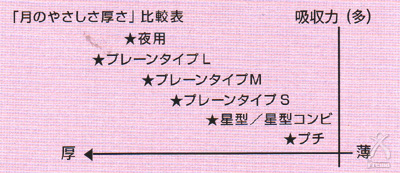 「月のやさしさ厚さ」比較表
吸収力（多）
★夜用
★プレーンタイプL
★プレーンタイプM
★プレーンタイプS
★星型／星型コンビ
★プチ
厚
薄